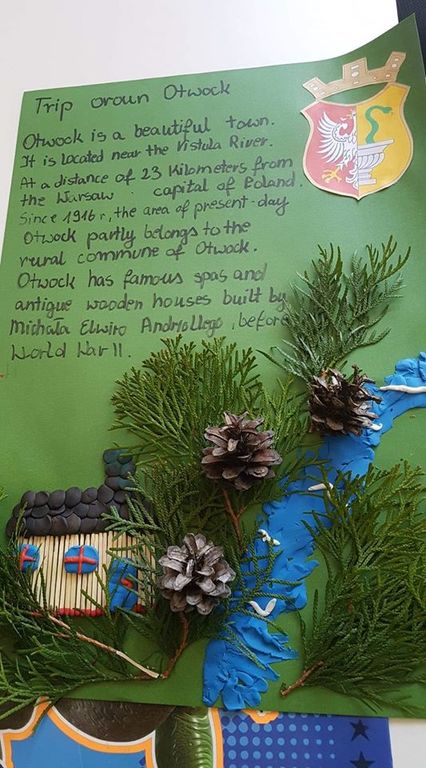 Trip oroun Otwock
Otwock is a beautiful town.
It is located near the Vistula River.
At a distance of 23 kilometers from
the Warsaw : capital of Poland.
Since 1916 r, the area of present-day
Otwock partly belongs to the
rural commune of Otwock.
Otwock has famous spas and
antique wooden houses built by
Michala Elwiro Andriollego, before
World War II.